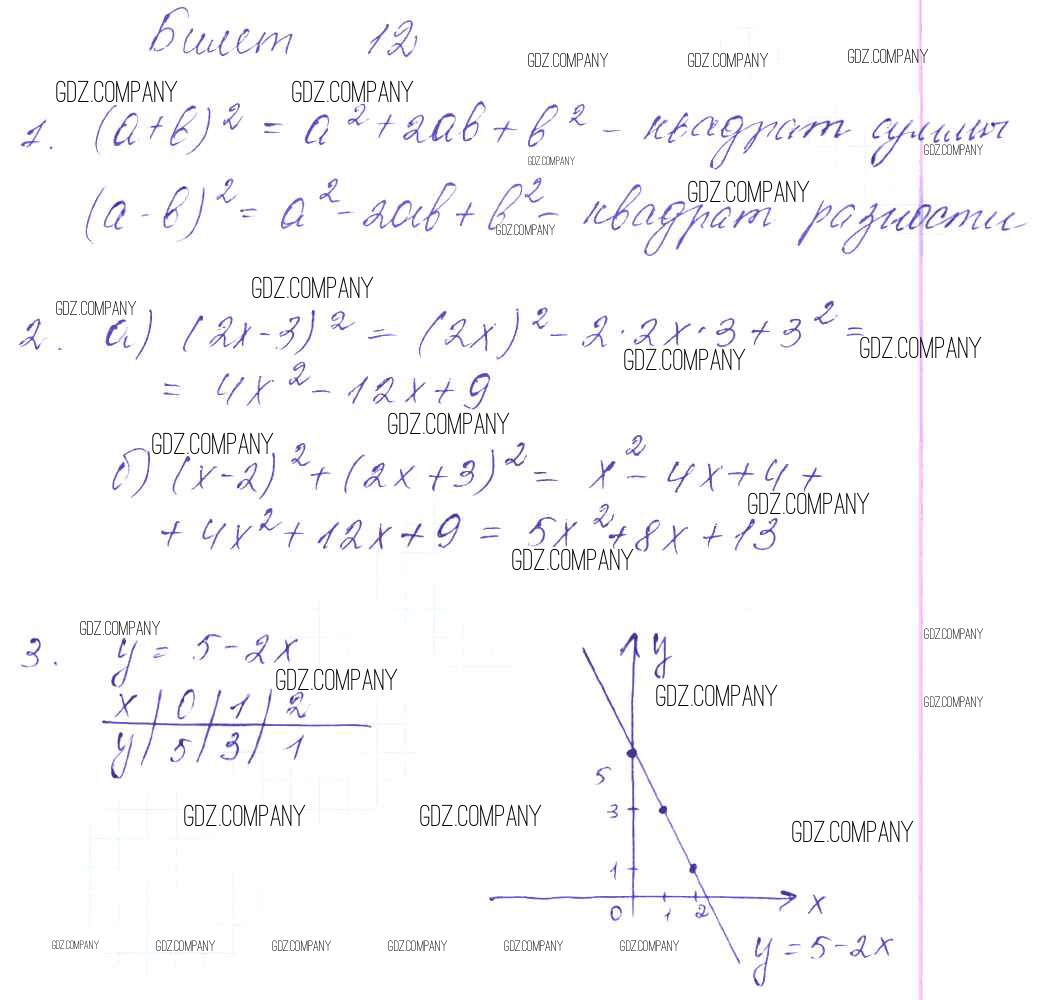 Билет 12
GDZ.COMPANY GDZ.COMPANY GDZ.COMPANY
GDZ.COMPANY GDZ.COMPANY
1. (a+b)² = a²+2ab+b² – квадрат суммы
GDZ.COMPANY GDZ.COMPANY
GDZ.COMPANY
(a-b)² = a²-2ab+b² – квадрат разности
GDZ.COMPANY
GDZ.COMPANY
GDZ.COMPANY
2. а) (2x-3)² = (2x)² - 2·2x·3+3² =
GDZ.COMPANY GDZ.COMPANY
= 4x² - 12x+9
GDZ.COMPANY
GDZ.COMPANY
б) (x-2)² + (2x+3)² = x² - 4x+4+
GDZ.COMPANY
+4x²+12x+9 = 5x²+8x+13
GDZ.COMPANY
GDZ.COMPANY GDZ.COMPANY
3. y = 5-2x
y
GDZ.COMPANY GDZ.COMPANY GDZ.COMPANY
x | 0 | 1 | 2
y | 5 | 3 | 1
5
3
GDZ.COMPANY GDZ.COMPANY GDZ.COMPANY
1
0 1 2 x
GDZ.COMPANY GDZ.COMPANY GDZ.COMPANY GDZ.COMPANY GDZ.COMPANY GDZ.COMPANY
y = 5-2x